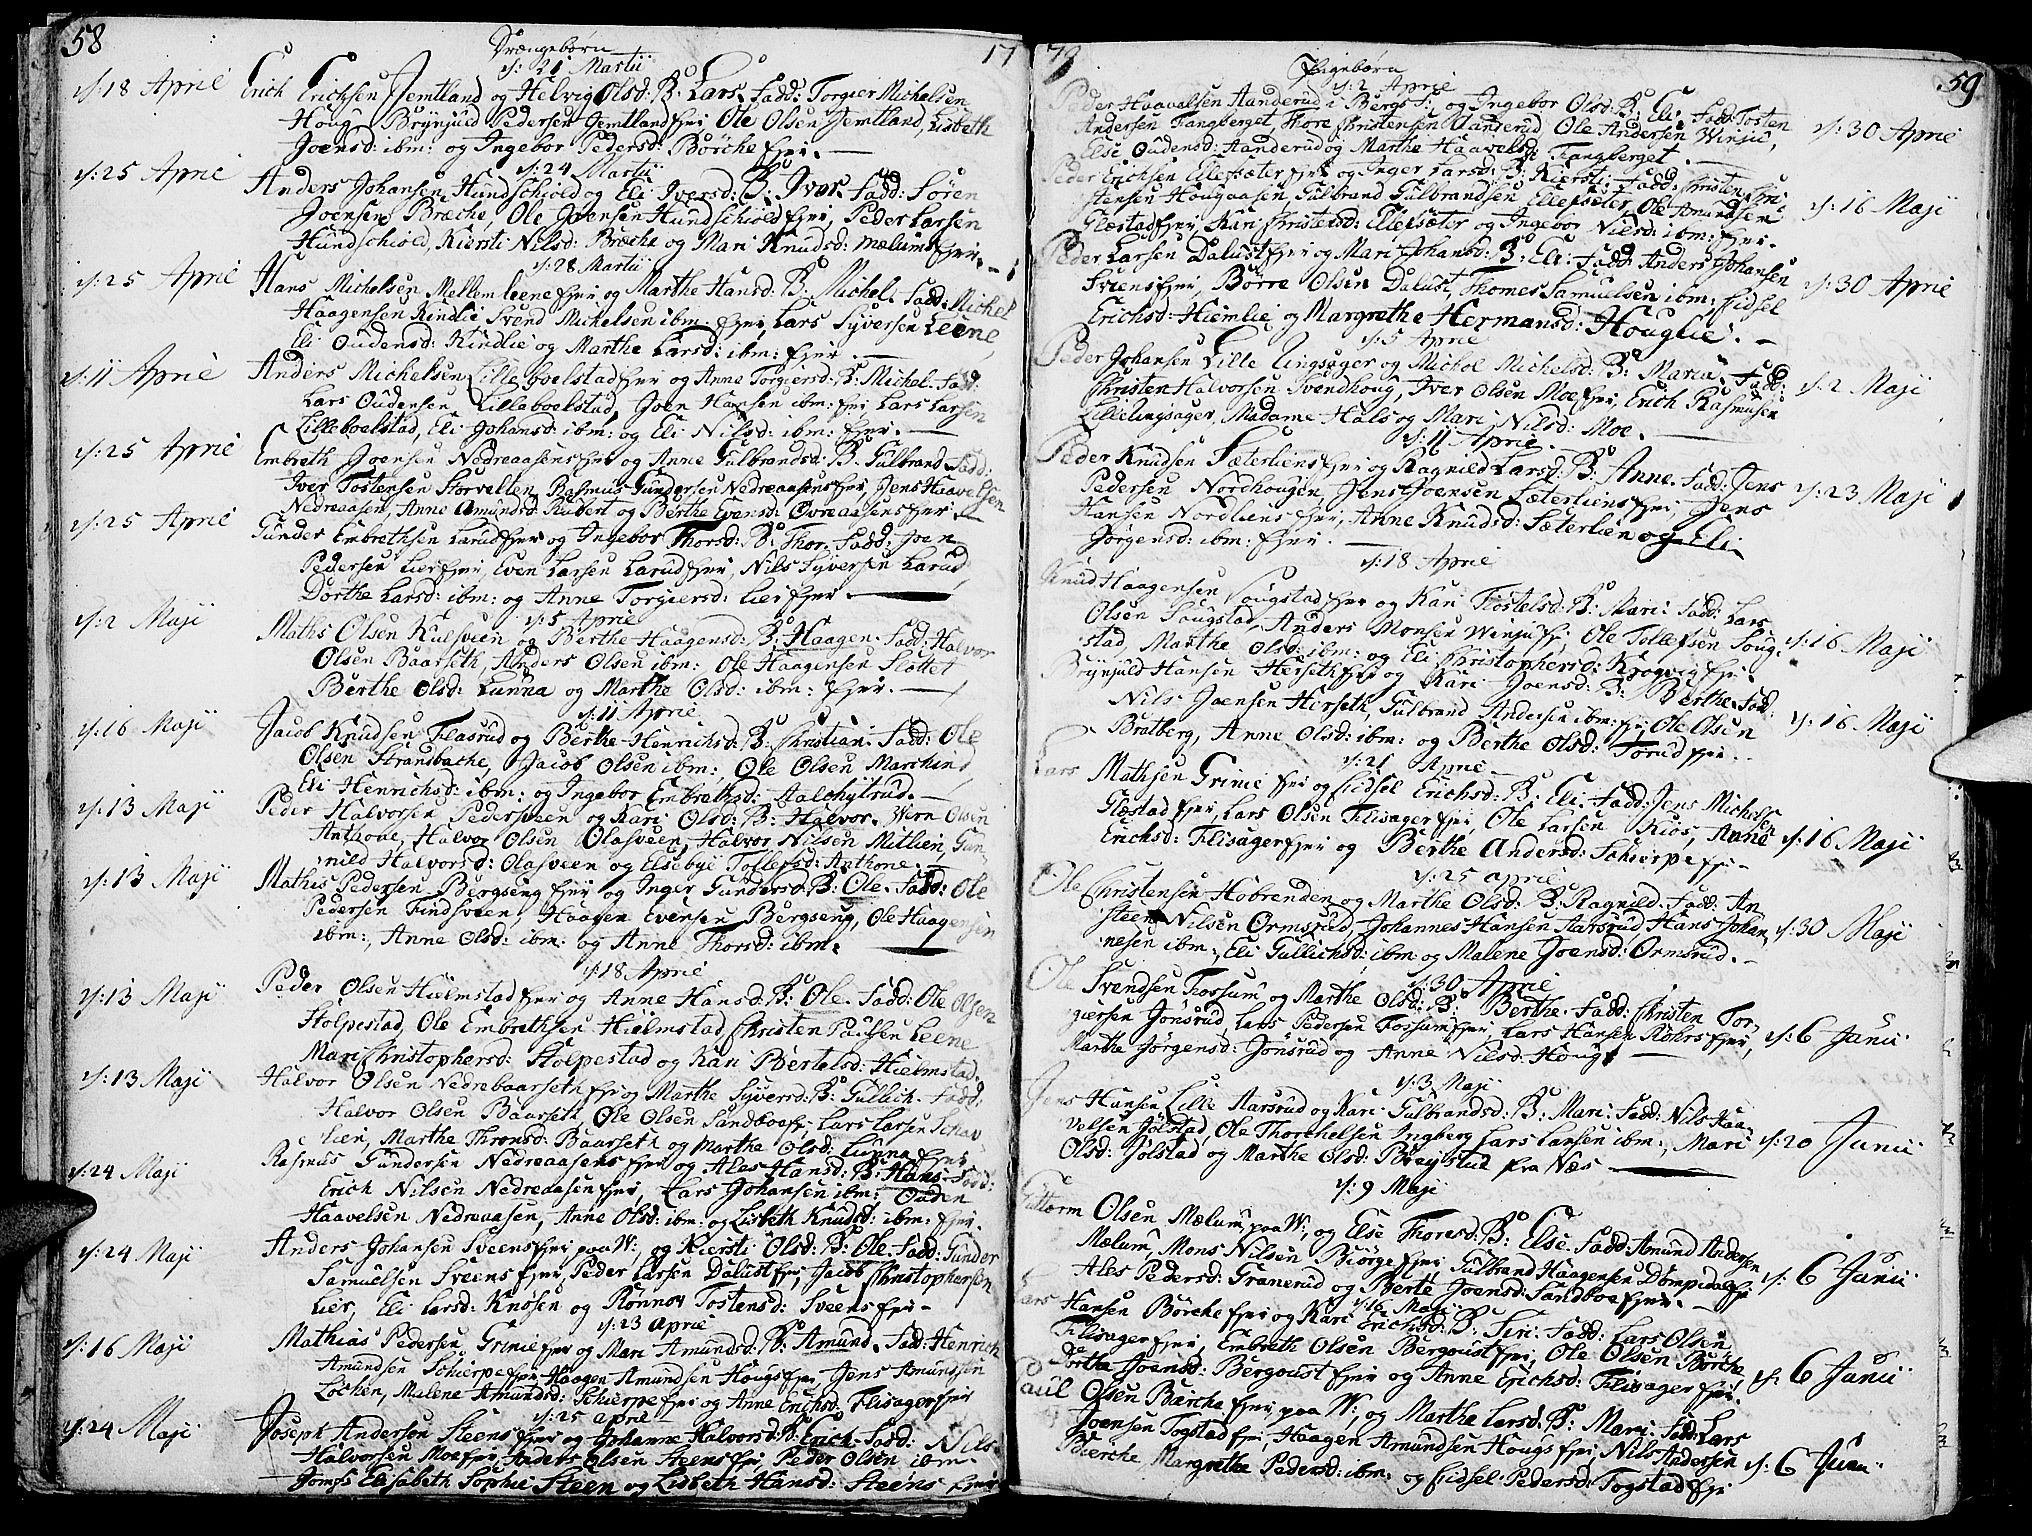 58
Drængebørn
17
d: 21 Martii
d: 18 April Erich Erichsen Jemtland og Helvig Olsd: B: Lars. Fadd: Torgier Michelsen
Houg Brynjuld Pedersen Jemtland Ejer Ole Olsen Jemtland, Lisbeth
Joensd: ibm: og Ingebor Pedersd: Børche Ejer.
d: 24 Martii
d: 25 April Anders Johansen Hundschiold og Eli Iversd: B: Iver. Fadd: Søren
Joensen Bræche, Ole Joensen Hundschiold Ejer, Peder Larsen
Hundschiold, Kiersti Nilsd: Bræche og Mari Knudsd: Mælums Ejer.
d: 28 Martii
d: 25 April Hans Michelsen Mellem Leene Ejer og Marthe Hansd: B: Michel. Fadd: Michel
Haagensen Kindlie Svend Michelsen ibm: Ejer, Lars Syversen Leene,
Eli Oudensd: Kindlie og Marthe Larsd: ibm: Ejer.
d: 11 April Anders Michelsen Lilleboelstad Ejer og Anne Torgiersd: B: Michel. Fadd:
Lars Oudensen Lilleboelstad, Joen Hansen ibm: Ejer Lars Larsen
Lilleboelstad, Eli Johansd: ibm: og Eli Nilsd: ibm: Ejer.
d: 25 April Embreth Joensen Nedreaasens Ejer og Anne Gulbrandsd: B: Gulbrand Fadd:
Iver Tostensen Storvelten, Rasmus Gundersen Nedreaasens Ejer, Jens Haavelsen
Nedreaasen, Anne Amundsd: Rubert og Berthe Evensd: Øvreaasens Ejer
d: 25 April Gunder Embrethsen Larud Ejer og Ingebor Thorsd: B: Thor. Fadd: Joen
Pedersen Lier Ejer, Even Larsen Larud Ejer, Nils Syversen Larud
Dorthe Larsd: ibm: og Anne Torgiersd: Lier Ejer.
d: 5 April
d: 2 Maji Maths Olsen Kulsveen og Berthe Haagensd: B: Haagen. Fadd: Halvor
Olsen Baarseth, Anders Olsen ibm: Ole Haagensen Slattet
Berthe Olsd: Lunna og Marthe Olsd: ibm: Ejer.
d: 11 April
d: 16 Maji Jacob Knudsen Flasrud og Berthe Henrichsd: B: Christian. Fadd: Ole
Olsen Strandbache, Jacob Olsen ibm:, Ole Olsen Marchind
Eli Henrichsd: ibm: og Ingebor Embrethsd: Aalchytrud.
d: 13 Maji Peder Halvorsen Pedersveen og Kari Olsd: B: Halvor. Wern Olsen
Anthone, Halvor Olsen Olasveen, Halvor Nilsen Millien, Gun-
nild Halvorsd: Olasveen og Elsebye Tollefsd: Anthone.
d: 13 Maji Mathis Pedersen Bergseng Ejer og Inger Gundersd: B: Ole. Fadd: Ole
Pedersen Findsveen, Haagen Evensen Bergseng, Ole Haagensen
ibm:, Anne Olsd: ibm: og Anne Thorsd: ibm:
d: 18 April
d: 13 Maji Peder Olsen Hielmstad Ejer og Anne Hansd: B: Ole. Fadd: Ole Olsen
Stolpestad, Ole Embrethsen Hielmstad, Christen Paulsen Leene
Mari Christophersd: Stolpestad og Kari Bertelsd: Hielmstad.
d: 13 Maji Halvor Olsen Nedrebaarseth Ejer og Marthe Syversd: B: Gullich. Fadd:
Halvor Olsen Baarseth, Ole Olsen Sandboe Ejer, Lars Larsen
lien, Marthe Thronsd: Baarseth og Marthe Olsd: Lunna Ejer
d: 24 Maji Rasmus Gundersen Nedreaasens Ejer og Ales Hansd: B: Hans. Fadd:
Erich Nilsen Nedreaasen Ejer, Lars Johansen ibm: Ouden
Haavelsen Nedreaasen, Anne Olsd: ibm: og Lisbeth Knudsd: ibm: Ejer.
d: 24 Maji Anders Johansen Sveens Ejer paa W:, og Kiersti Olsd: B: Ole. Fadd: Gunder
Samuelsen Sveens Ejer, Peder Larsen Dalust Ejer, Jacob Christophersen
Lier, Eli Larsd: Knosen og Ronnov Tostensd: Sveens Ejer
d: 23 April
d: 16 Maji Mathias Pedersen Grinie Ejer og Mari Amundsd: B: Amund. Fadd: Henrich
Amundsen Schierpe Ejer Haagen Amundsen Hougs Ejer, Jens Amundsen
Lochen, Malene Amundsd: Schierpe Ejer og Anne Erichsd: Flisager Ejer
d: 25 April
d: 24 Maji Joseph Andersen Steens Ejer og Johanne Halvorsd: B: Erich. Fadd: Nils
Halvorsen Moe Ejer, Anders Olsen Steens Ejer, Peder Olsen ibm.
Jomfr Elisabeth Sophie Steen og Lisbeth Hansd: Steens Ejer
79
Pigebørn
59
d: 2 April
Peder Haavelsen Aanderud i Bergs S:, og Ingebor Olsd: B: Eli. Fadd: Tosten
Andersen Fangberget, Thore Christensen Aanderud, Ole Andersen Winju, d: 30 April
Else Oudensd: Aanderud og Marthe Haavelsd: Fangberget.
Peder Erichsen Ellefsæter Ejer og Inger Larsd: B: Kiersti. Fadd: Christen Chri-
stensen Hougaasen, Gulbrand Gulbrandsen Ellefsæter, Ole Amundsen d: 16 Maji
Glæstad Ejer, Kari Christensd: Ellefsæter og Ingebor Nilsd: ibm: Ejer.
Peder Larsen Dalust Ejer og Mari Johansd: B: Eli. Fadd: Anders Johansen
Sveens Ejer, Børre Olsen Dalust, Thomes Samuelsen ibm: Sidsel d: 30 April
Erichsd: Hiemlie og Margrethe Hermansd: Houglie.
d: 5 April
Peder Johansen Lille Ungsager og Michol Michelsd: B: Maria. Fadd:
Christen Halvorsen Svendhoug, Iver Olsen Moe Ejer, Erich Rasmusen d: 2 Maji
Lilleungsager, Madame Hals og Mari Nilsd: Moe.
d: 11 April
Peder Knudsen Sæterliens Ejer og Ragnild Larsd: B: Anne. Fadd: Jens
Pedersen Nordhougen, Jens Joensen Sæterliens Ejer, Jens d: 23 Maji
Hansen Nordliens Ejer, Anne Knudsd: Sæterlien og Eli
Jørgensd: ibm: Ejer.
d: 18 April
Knud Haagensen Sougstad Ejer og Kari Tostelsd: B: Mari. Fadd: Lars
Olsen Sougstad, Anders Monsen Winju Ej: Ole Tollefsen Soug-
stad, Marthe Olsd: ibm: og Eli Christophersd: Krogvig Ejer. d: 16 Maji
Brynjuld Hansen Herseth Ejer og Kari Joensd: B: Berthe. Fad:
Nils Joensen Herseth, Gulbrand Andersen ibm: Ej: Ole Olsen
Bratberg, Anne Olsd: ibm: og Berthe Olsd: Torud Ejer. d: 16 Maji
d: 21 April
Lars Mathsen Grinie Ejer og Sidsel Erichsd: B: Eli. Fadd: Jens Michelsen
Glæstad Ejer, Lars Olsen Flisager Ejer, Ole Larsen Kios, Anne
Erichsd: Flisager Ejer og Berthe Andersd: Schierpe Ejer d: 16 Maji
d: 25 April
Ole Christensen Hobrenden og Marthe Olsd: B: Ragnild. Fadd: An
steen Nilsen Ormsrud, Johannes Hansen Aarsrud, Hans Johan- d: 30 Maji
nesen ibm:, Eli Gullichsd: ibm: og Malene Joensd: Ormsrud.
d: 30 April
Ole Svendsen Fossum, og Marthe Olsd: B: Berthe. Fadd: Christen Tor-
giersen Jønsrud, Lars Pedersen Fossum Ejer, Lars Hansen Røhrs Ejer, d: 6 Junii
Marthe Jørgensd: Jønsrud og Anne Nilsd: Houg.
d: 3 Maji
Jens Hansen Lille Aarsrud og Kari Gulbrandsd: B: Mari. Fadd: Nils Haa-
velsen Jølstad, Ole Thorchelsen Ingberg, Lars Larsen ibm:, Mari d: 20 Junii
Olsd: Jølstad og Marthe Olsd: Breystad fra Næs
d: 9 Maji
Guttorm Olsen Mælum, paa W:, og Else Thoresd: B: Else. Fadd: Amund Andersen
Mælum, Mons Nilsen Biørge Ejer Gulbrand Haagensen Dompidal Ejer d: 6 Junii
Ales Pedersd: Granerud og Berte Joensd: Sandboe Ejer.
d: 16 Maji
Lars Hansen Børche Ejer og Kari Erichsd: B: Siri. Fadd: Lars Olsen
Flisager Ejer, Embreth Olsen Bergquist Ejer, Ole Olsen Børche,
Dorthe Joensd: Bergquist Ejer og Anne Erichsd: Flisager Ejer. d: 6 Junii
Paul Olsen Børche Ejer paa W:, og Marthe Larsd: B: Mari. Fadd: Lars
Joensen Togstad Ejer, Haagen Amundsen Hougs Ejer, Nils Andersen
Bierche Margrethe Pedersd: ibm: og Sidsel Pedersd: Togstad Ejer d: 6 Junii